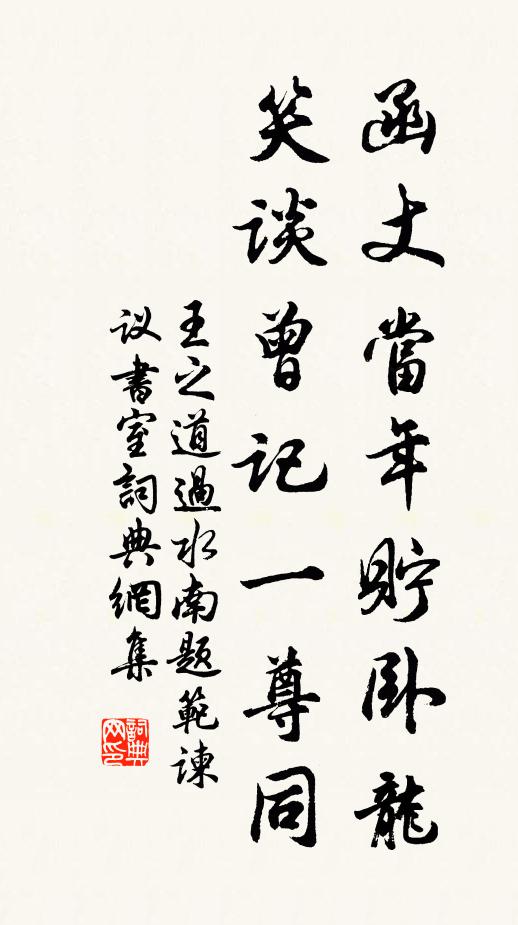 函丈當年貯卧龍
笑談曾記一尊同
王之道過水南題範諫
议書室詞典網集
詞典网印